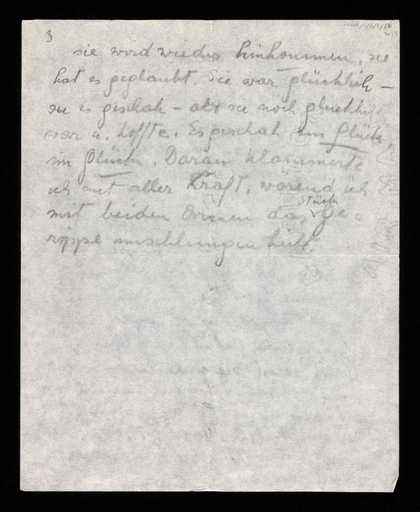 3
sie wird wieder hinkommen, sie
hat es geglaubt. Sie war glücklich –
es geschah – als sie noch glücklich
war u. hoffte. Es geschah im Glück,
im Glück. Daran klammerte
ich mit aller Kraft, wärend ich
mit beiden Armen das Stück Ge-
rippe umschlungen hielt.